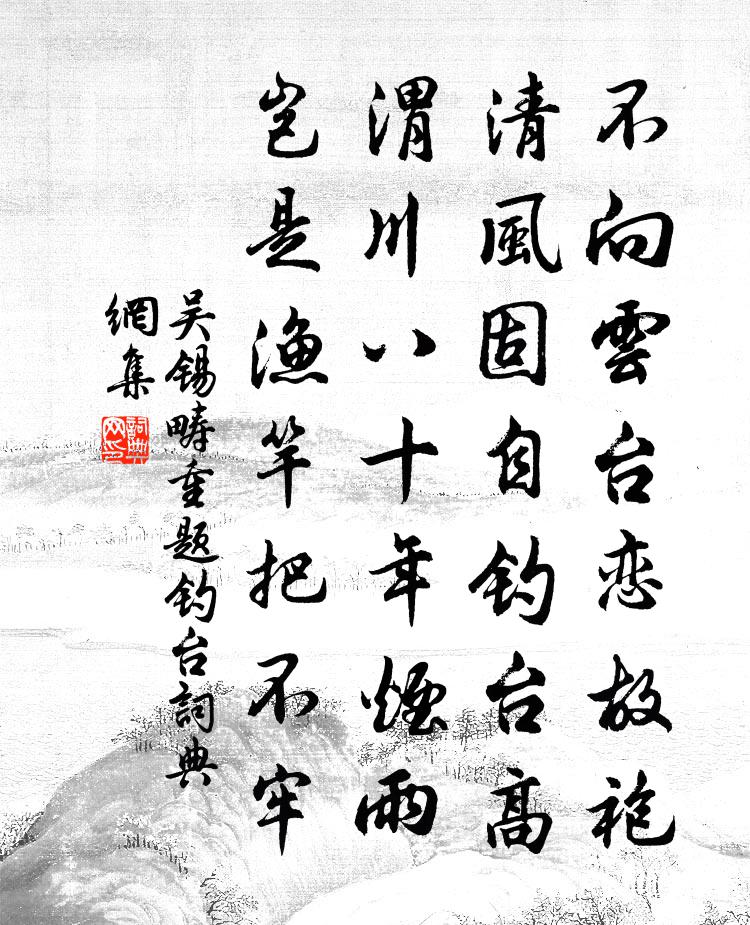 不向雲台恋故袍
清風固自钓台高
渭川八十年煙雨
岂是漁竿把不牢
吴锡畴重题钓台詞典
網集
詞典